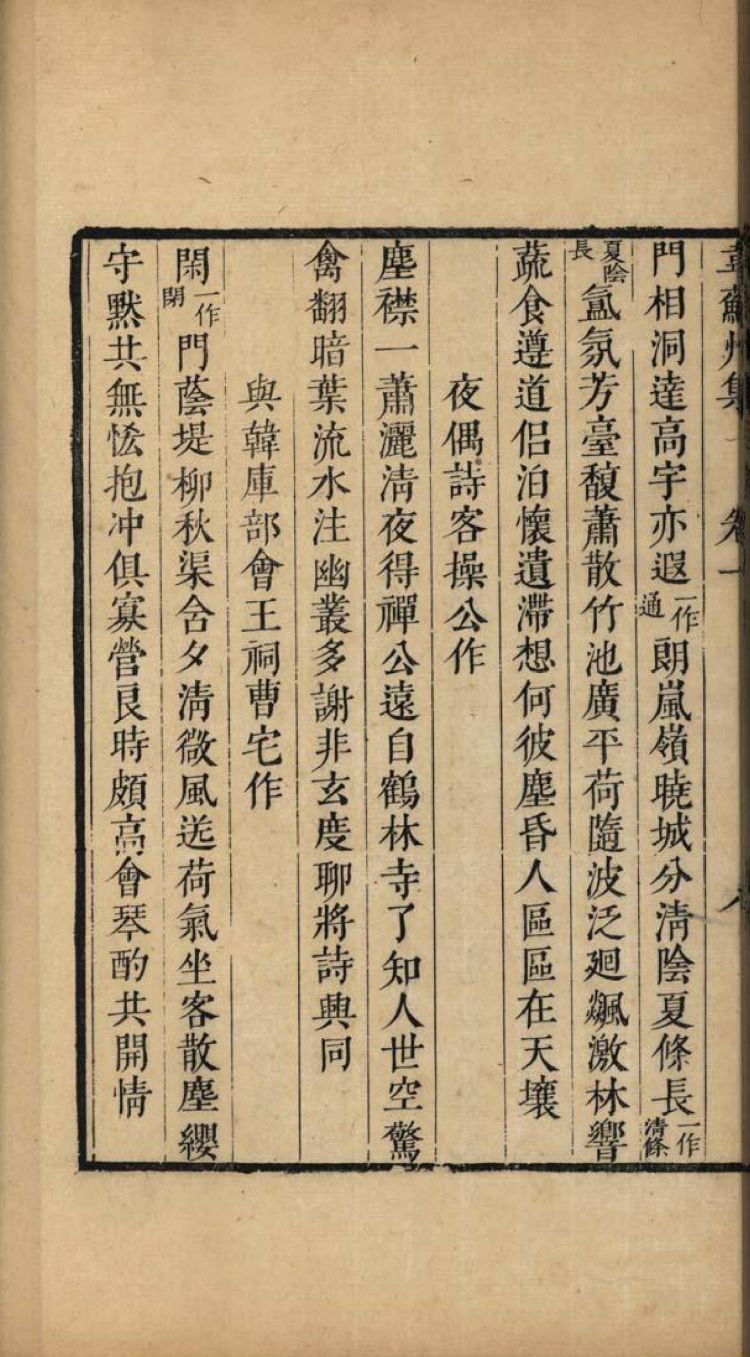 韋蘇州集　卷一　八
門相洞達高宇亦遐一作通朗嵐嶺曉城分淸陰夏條長一作淸條
夏陰長氳氛芳臺馥蕭散竹池廣平荷隨波泛廻飈激林響
蔬食遵道侣泊懷遺滯想何彼塵昏人區區在天壤
夜偶詩客操公作
塵襟一蕭灑淸夜得禪公遠自鶴林寺了知人世空驚
禽翻暗葉流水注幽叢多謝非玄度聊將詩興同
與韓庫部會王祠曹宅作
閑一作閉門蔭堤柳秋渠含夕淸微風送荷氣坐客散塵纓
守默共無恡抱冲俱寡營良時頗高會琴酌共開情